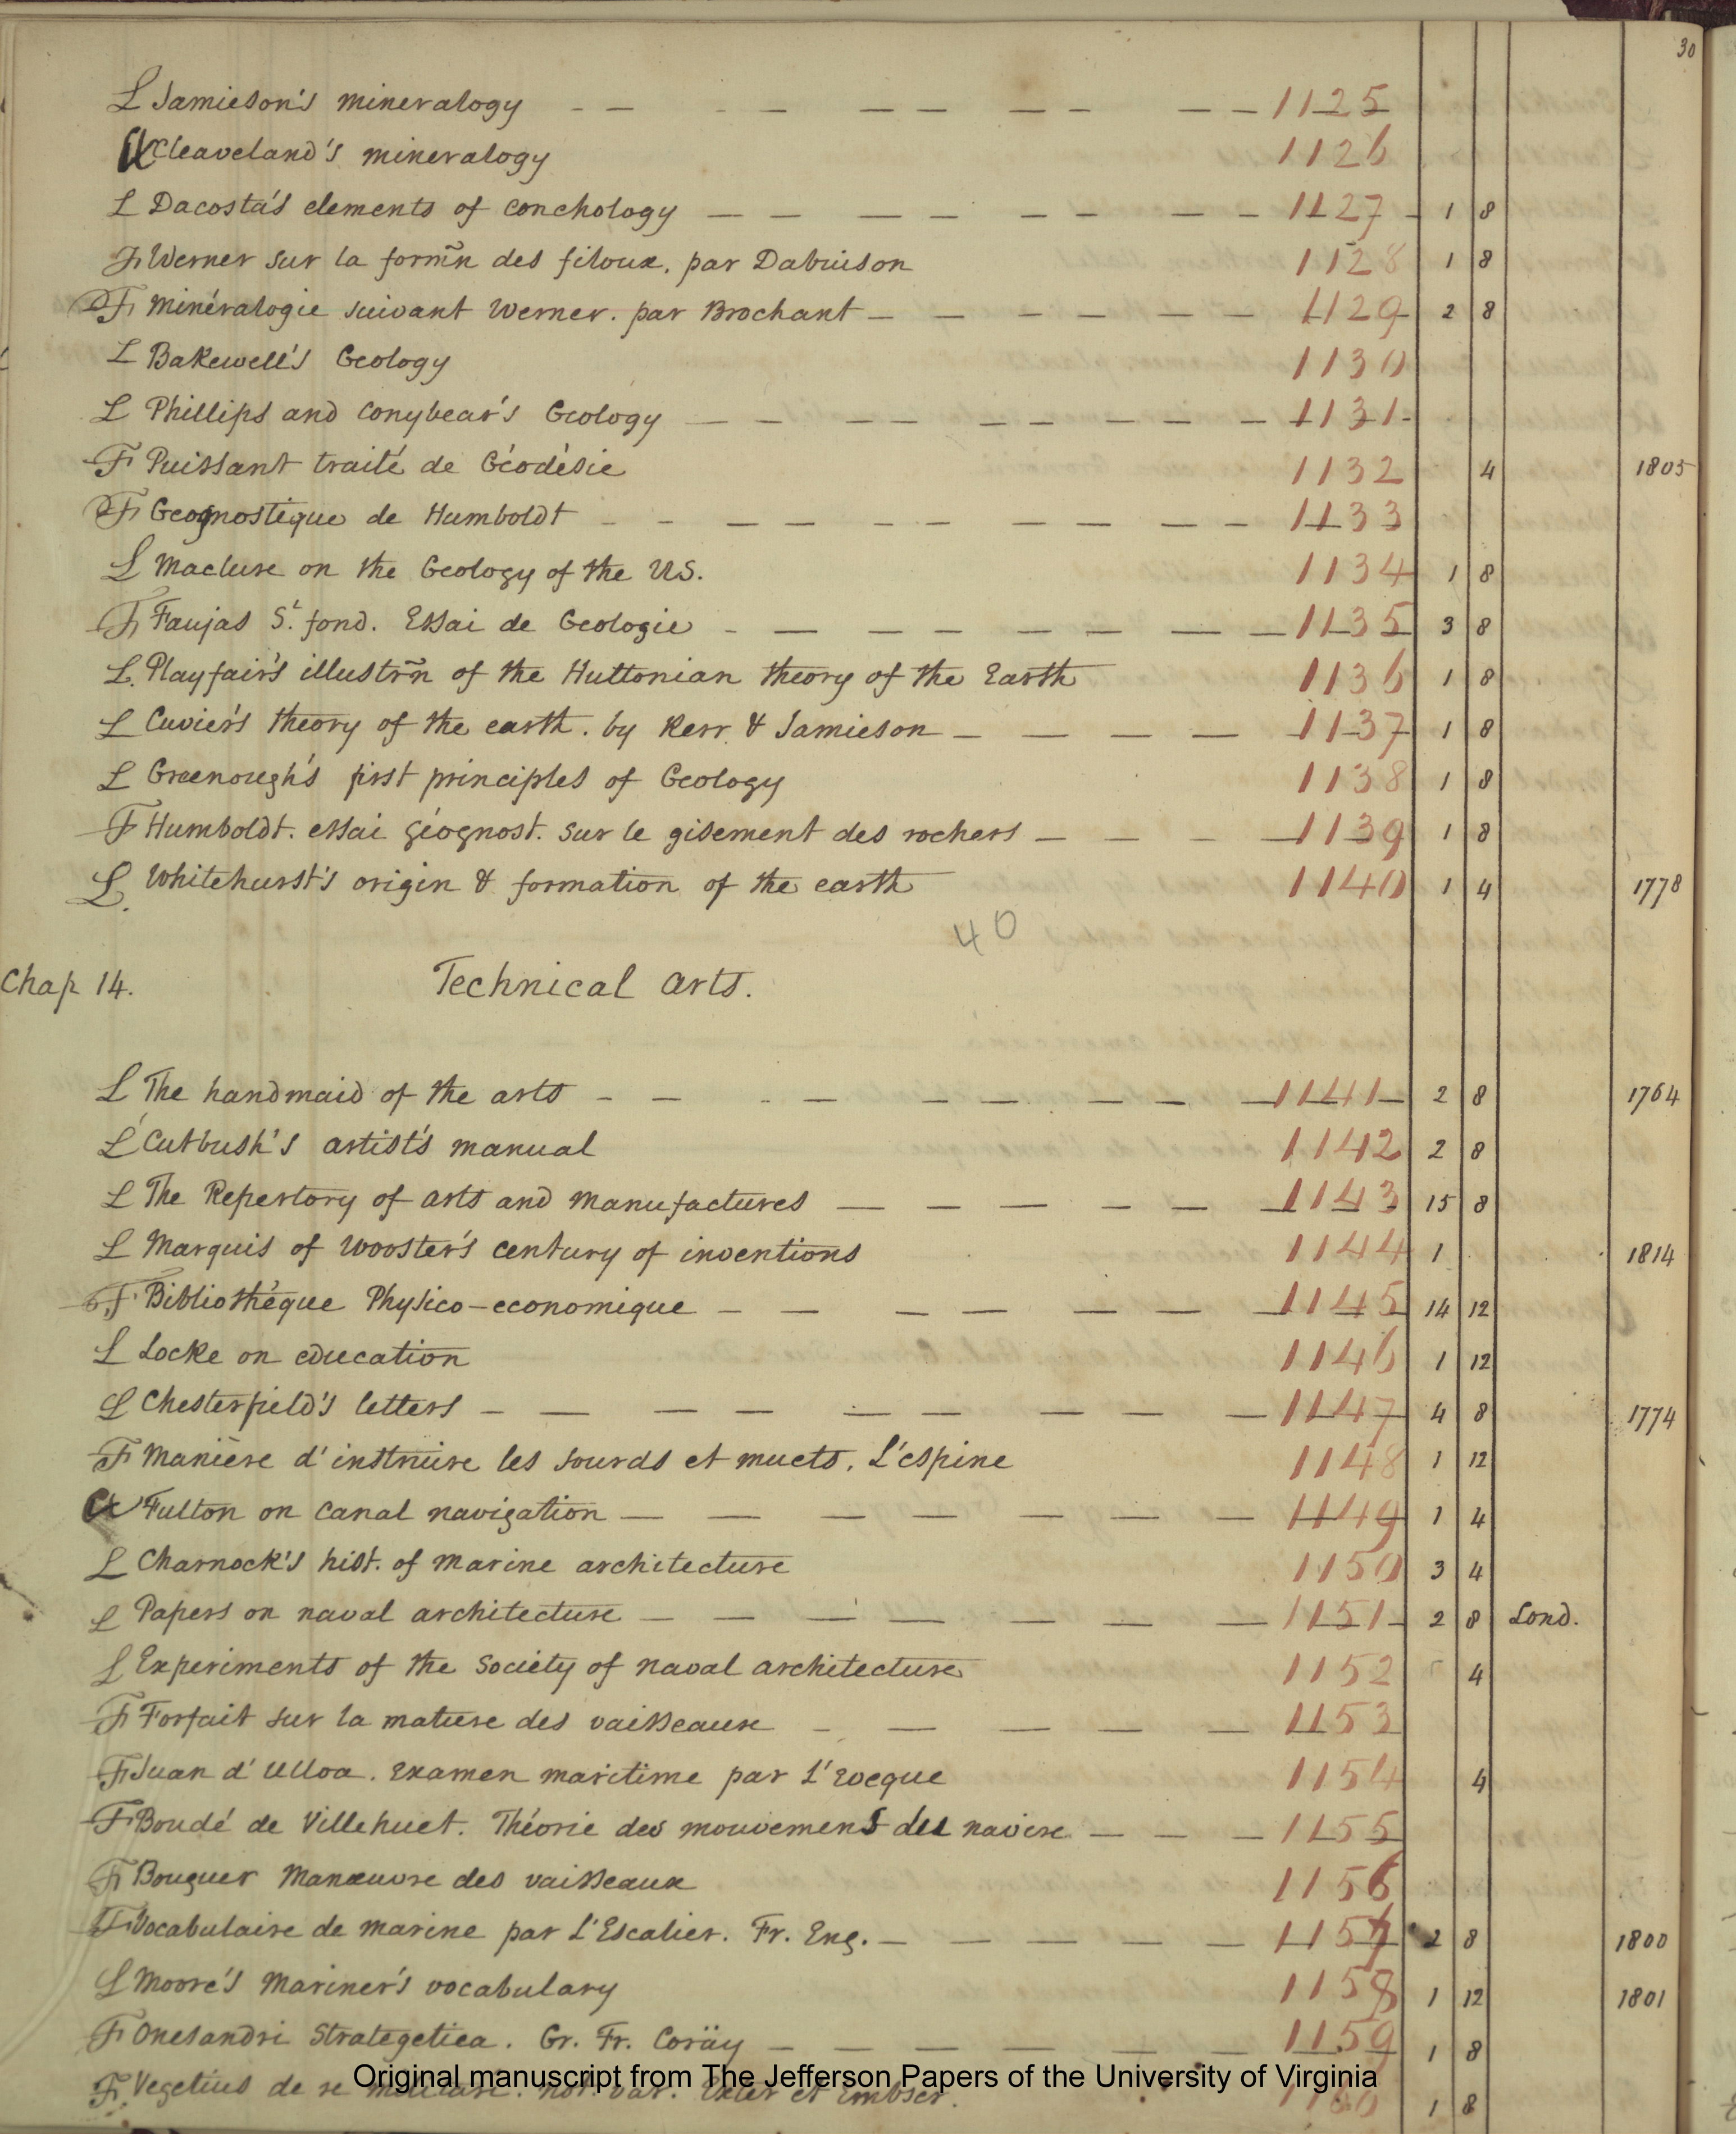 30
L Jamieson's mineralogy - - - - - - - - - - 1125
a Cleaveland's mineralogy 1126
L Dacosta's elements of conchology - - - - - - - - 1127 1 8
F Werner sur la formñ des filoux. par Dabuison 1128 1 8
F minéralogie suivant Werner. par Brochant - - - - - - 1129 2 8
L Bakewell's Geology 1130
L Phillips and Conybear's Geology - - - - - - - - - 1131
F Puissant traité de Géodésie 1132 4 1805
F Geognostique de Humboldt - - - - - - - - - 1133
L Maclure on the Geology of the US. 1134 1 8
F Faujas St. fond. Essai de Geologie - - - - - - - 1135 3 8
L. Playfair's illustrñ of the Huttonian theory of the Earth 1136 1 8
L Cuvier's theory of the earth. by Kerr & Jamieson - - - - 1137 1 8
L Greenough's first principles of Geology 1138 1 8
F Humboldt. essai géognost. sur le gisement des rochers - - - 1139 1 8
L. Whitehurst's origin & formation of the earth 1140 1 4 1778
40
Chap 14. Technical arts.
L The handmaid of the arts - - - - - - - - - 1141 2 8 1764
L Cutbush's artist's manual 1142 2 8
L The Repertory of arts and manufactures - - - - - 1143 15 8
L Marquis of Wooster's century of inventions 1144 1 1814
F Bibliothéque Physico-economique - - - - - - - 1145 14 12
L Locke on education 1146 1 12
L Chesterfield's letters - - - - - - - - - 1147 4 8 1774
F Manière d'instruire les sourds et muets. L'espine 1148 1 12
a Fulton on canal navigation - - - - - - - 1149 1 4
L Charnock's hist. of marine architecture 1150 3 4
L Papers on naval architecture - - - - - - - 1151 2 8 Lond.
L Experiments of the Society of naval architecture 1152 4
F Forfait sur la mature des vaisseaux - - - - - 1153
F Juan d'Ulloa. Examen maritime par L'eveque 1154 4
F Boudé de Villehuet. Théorie des mouvemens des navire - - - 1155
F Bouguer Manœuvre des vaisseaux 1156
F Vocabulaire de marine par L'Escalier. Fr. Eng. - - - - - 1157 2 8 1800
L Moore's Mariner's vocabulary 1158 1 12 1801
F Onesandri Strategetica. Gr. Fr. Coräy - - - - - - 1159 1 8
F. Vegetius de re militare. not. var. et Embser. 1160 1 8
Original manuscript from The Jefferson Papers of the University of Virginia